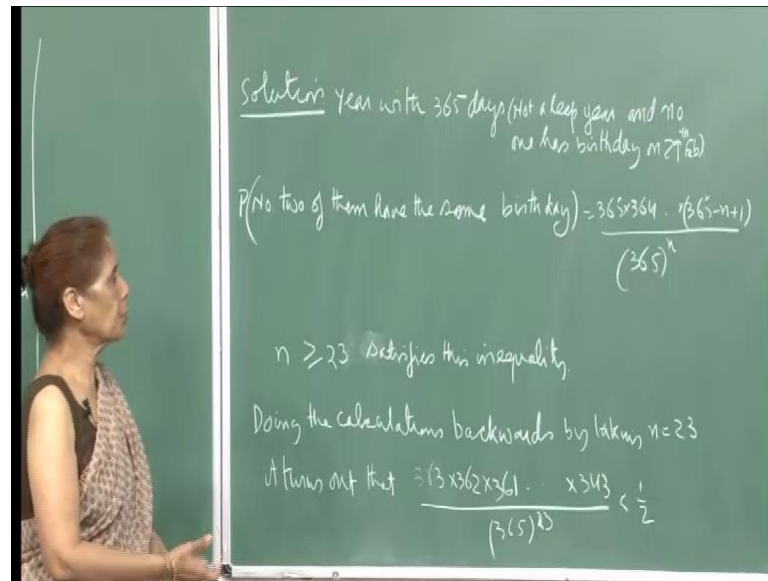 Solution Year with 365 days (Not a leap year and no
one has birthday on 29th Feb)
P(No two of them have the same birthday) = 365×364 . ×(365-n+1)
(365)^n
n ≥ 23 satisfies this inequality.
Doing the calculations backwards by taking n=23
it turns out that 363×362×361 . . ×343 < 1/2
(365)^23